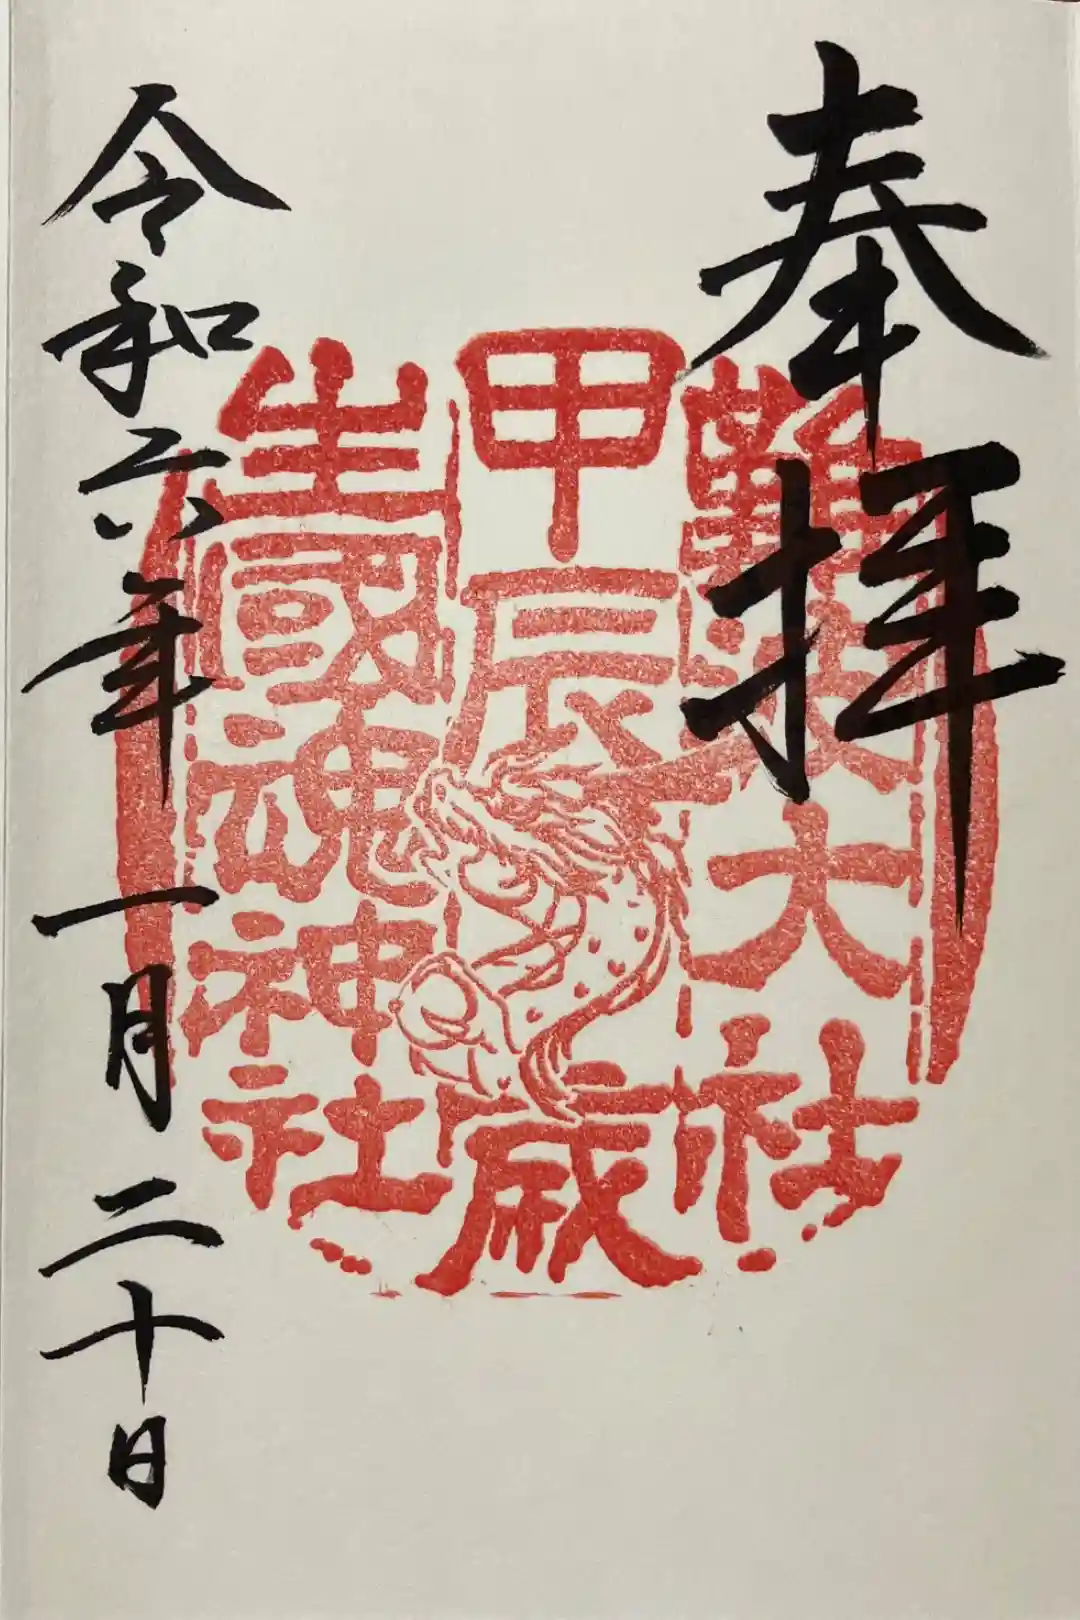 奉拝
難波大社
甲辰歳
生國魂神社
令和六年一月二十日